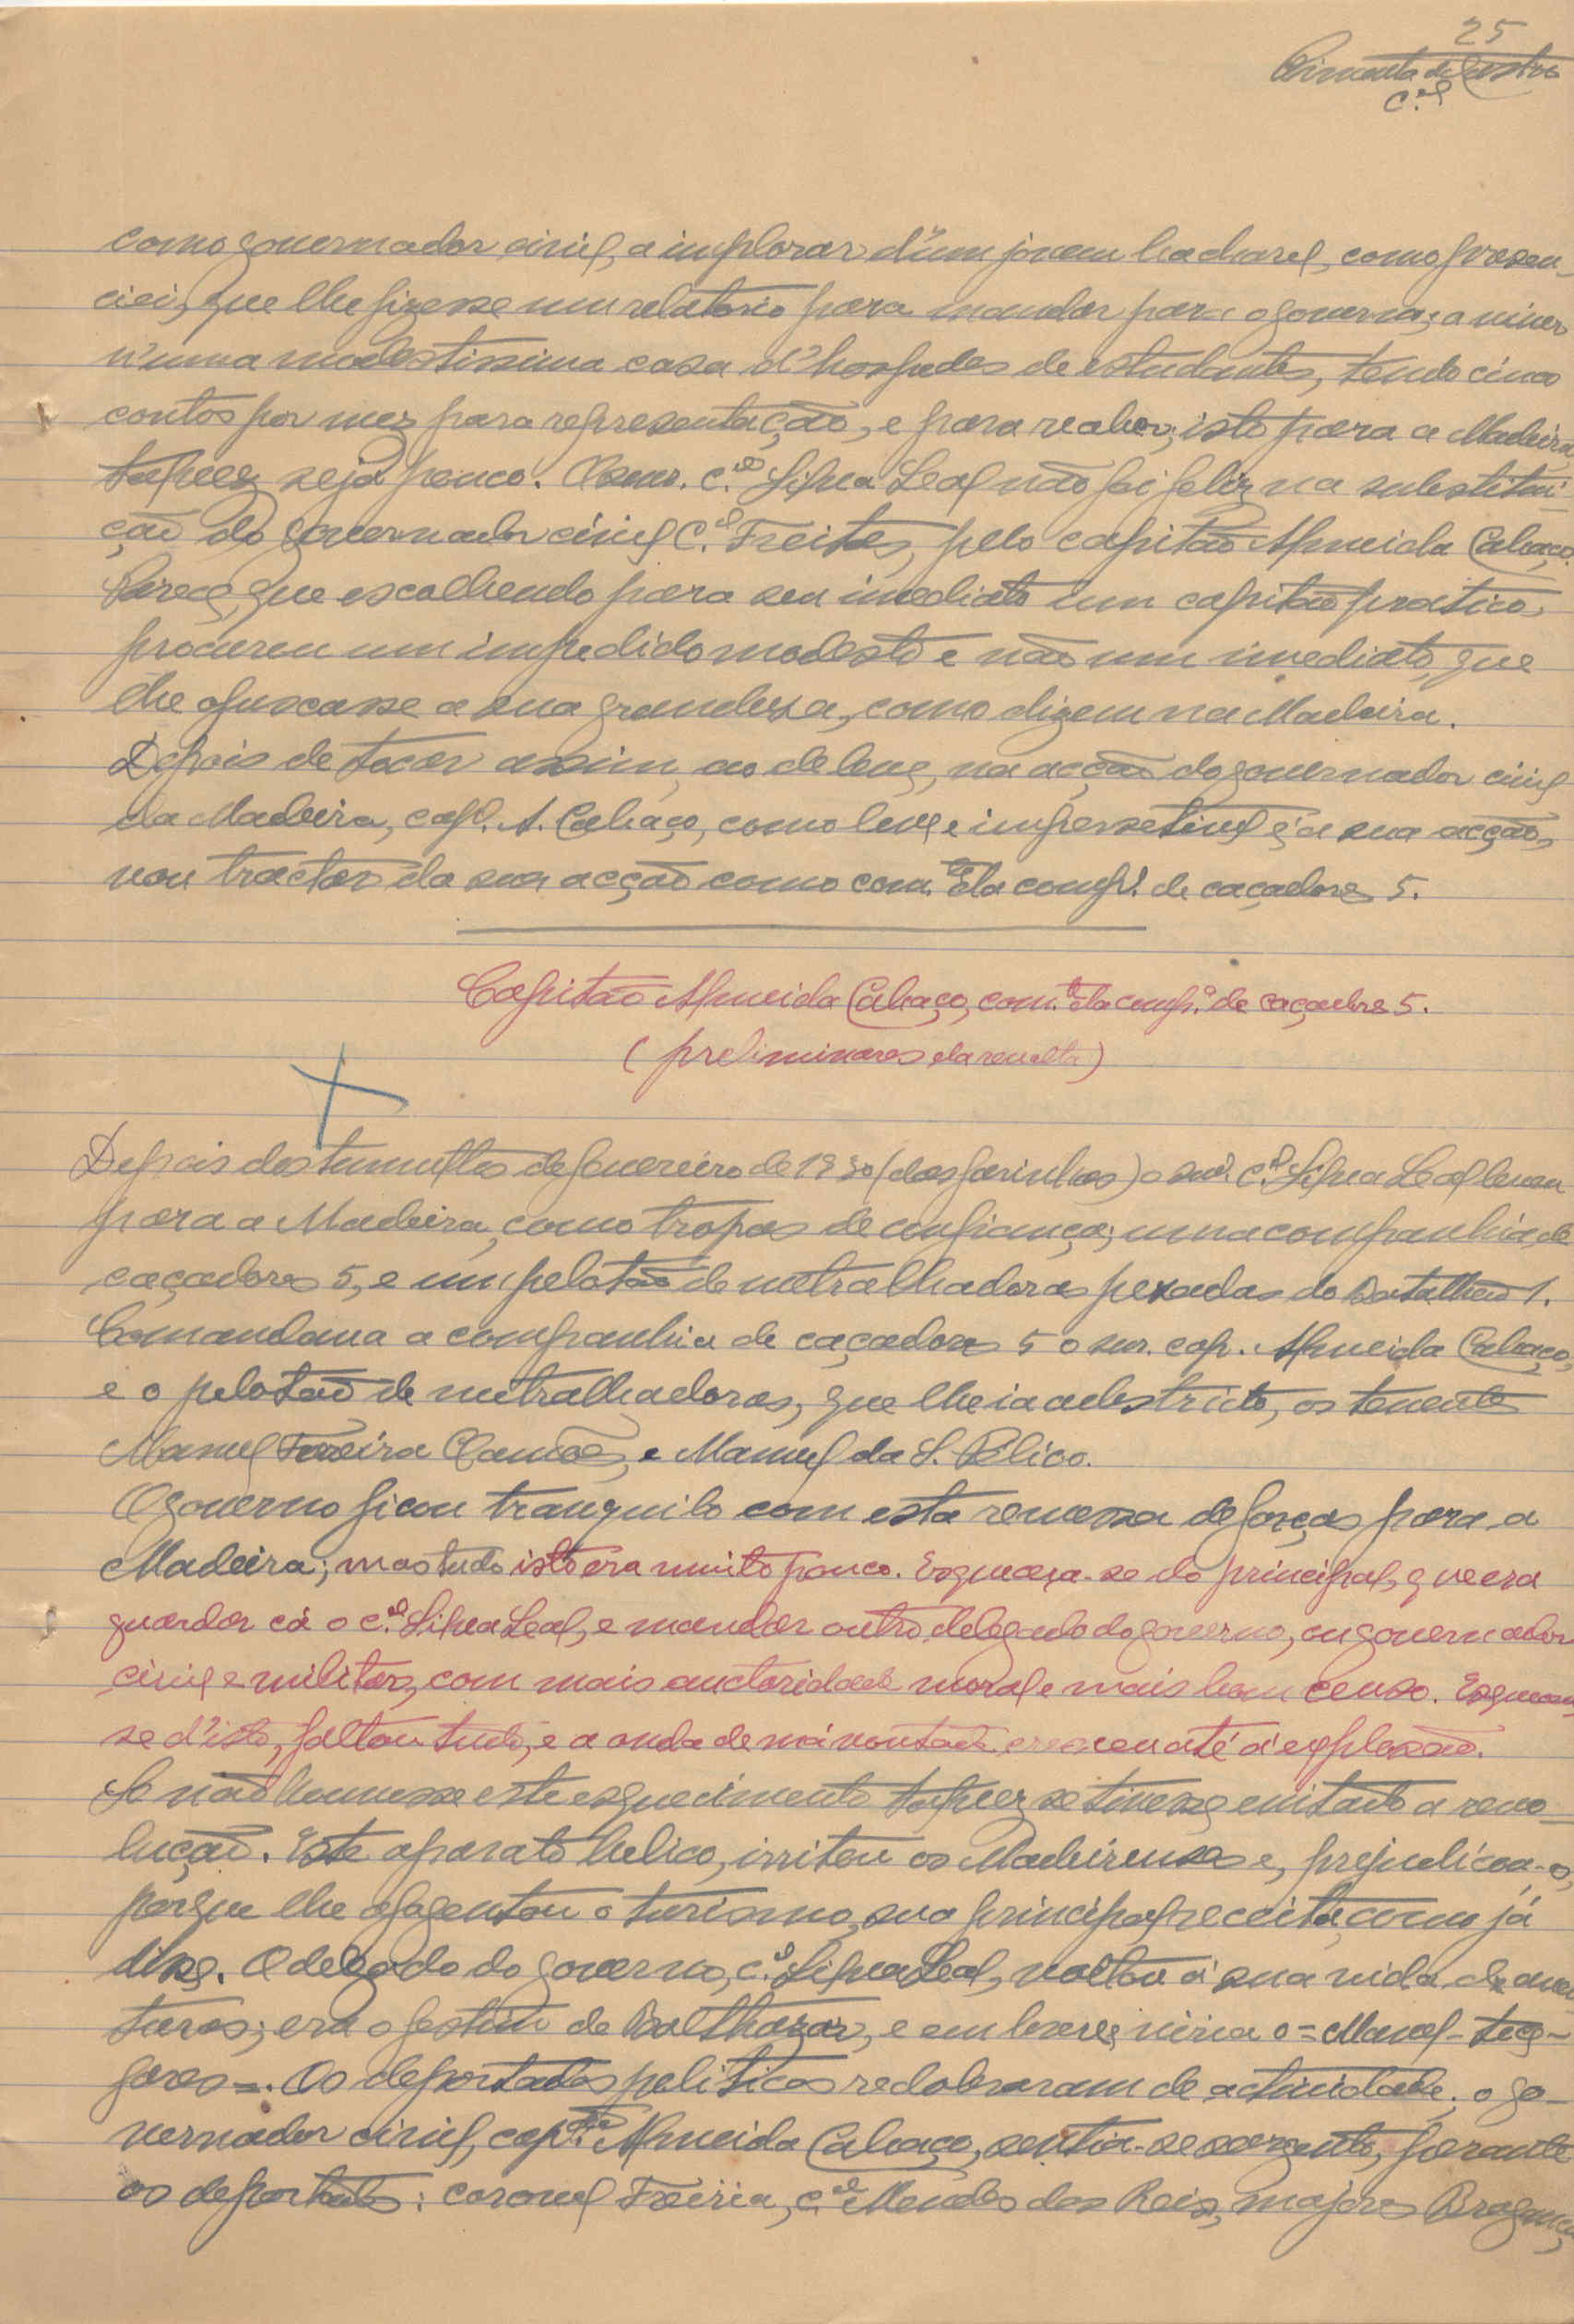 25
Pimenta de Castro
C.el
como governador civil, a implorar d'um jovem bacharel, como presen-
ciei, que lhe fizesse um relatorio para mandar para o governo; a viver
n'uma modestissima casa d'hospedes de estudantes, tendo cinco
contos por mez para representação, e para receber; isto para a Madeira
talvez seja pouco. O snr. C.el Silva Leal não foi feliz na substitui-
ção do governador civil C.el Freitas, pelo capitão Almeida Cabaço.
Parece, que escolhendo para seu imediato um capitão pratico,
procurou um impedido modesto e não um imediato, que
lhe ofuscasse a sua grandeza, como dizem na Madeira.
Depois de tocar assim, ao de leve, na acção do governador civil
da Madeira, cap. A. Cabaço, como leve e imperceptivel é a sua acção,
vou tractar da sua acção como com.te da comp.a de caçadores 5.
Capitão Almeida Cabaço, com.te da comp.a de caçadores 5.
(preliminares da revolta)
Depois dos tumultos de fevereiro de 1930 (das farinhas) o snr. C.el Silva Leal levou
para a Madeira, como tropas de confiança; uma companhia de
caçadores 5, e um pelotão de metralhadoras pesadas do Batalhão 1.
Comandava a companhia de caçadores 5 o snr. cap. Almeida Cabaço,
e o pelotão de metralhadoras, que lhe ia adestricto, os tenentes
Manuel Ferreira Camões, e Manuel da S. Pélico.
O governo ficou tranquilo com esta remessa de forças para a
Madeira; mas tudo isto era muito pouco. Esqueceu-se do principal, que era
guardar cá o C.el Silva Leal, e mandar outro delegado do governo, ou governador
civil e militar, com mais auctoridade moral e mais bom censo. Esqueceu
se d'isto, faltou tudo, e a onda de má vontade cresceu até á explosão.
Se não houvesse este esquecimento talvez se tivesse evitado a revo-
lução. Este aparato belico, irritou os Madeirenses e, prejudicou-o,
porque lhe afugentou o turismo, sua principal receita, como já
disse. O delegado do governo, C.el Silva Leal, voltou á sua vida de aven
turas; era o festim de Balthazar, e em breve, viria o = Manel - Tecel -
Fares =. Os deportados politicos redobraram de actividade; o go-
vernador civil, cap.tão Almeida Cabaço, sentia-se sargento, perante
os deportados: coronel Freiria, C.el Mendes dos Reis, majores Bragança,